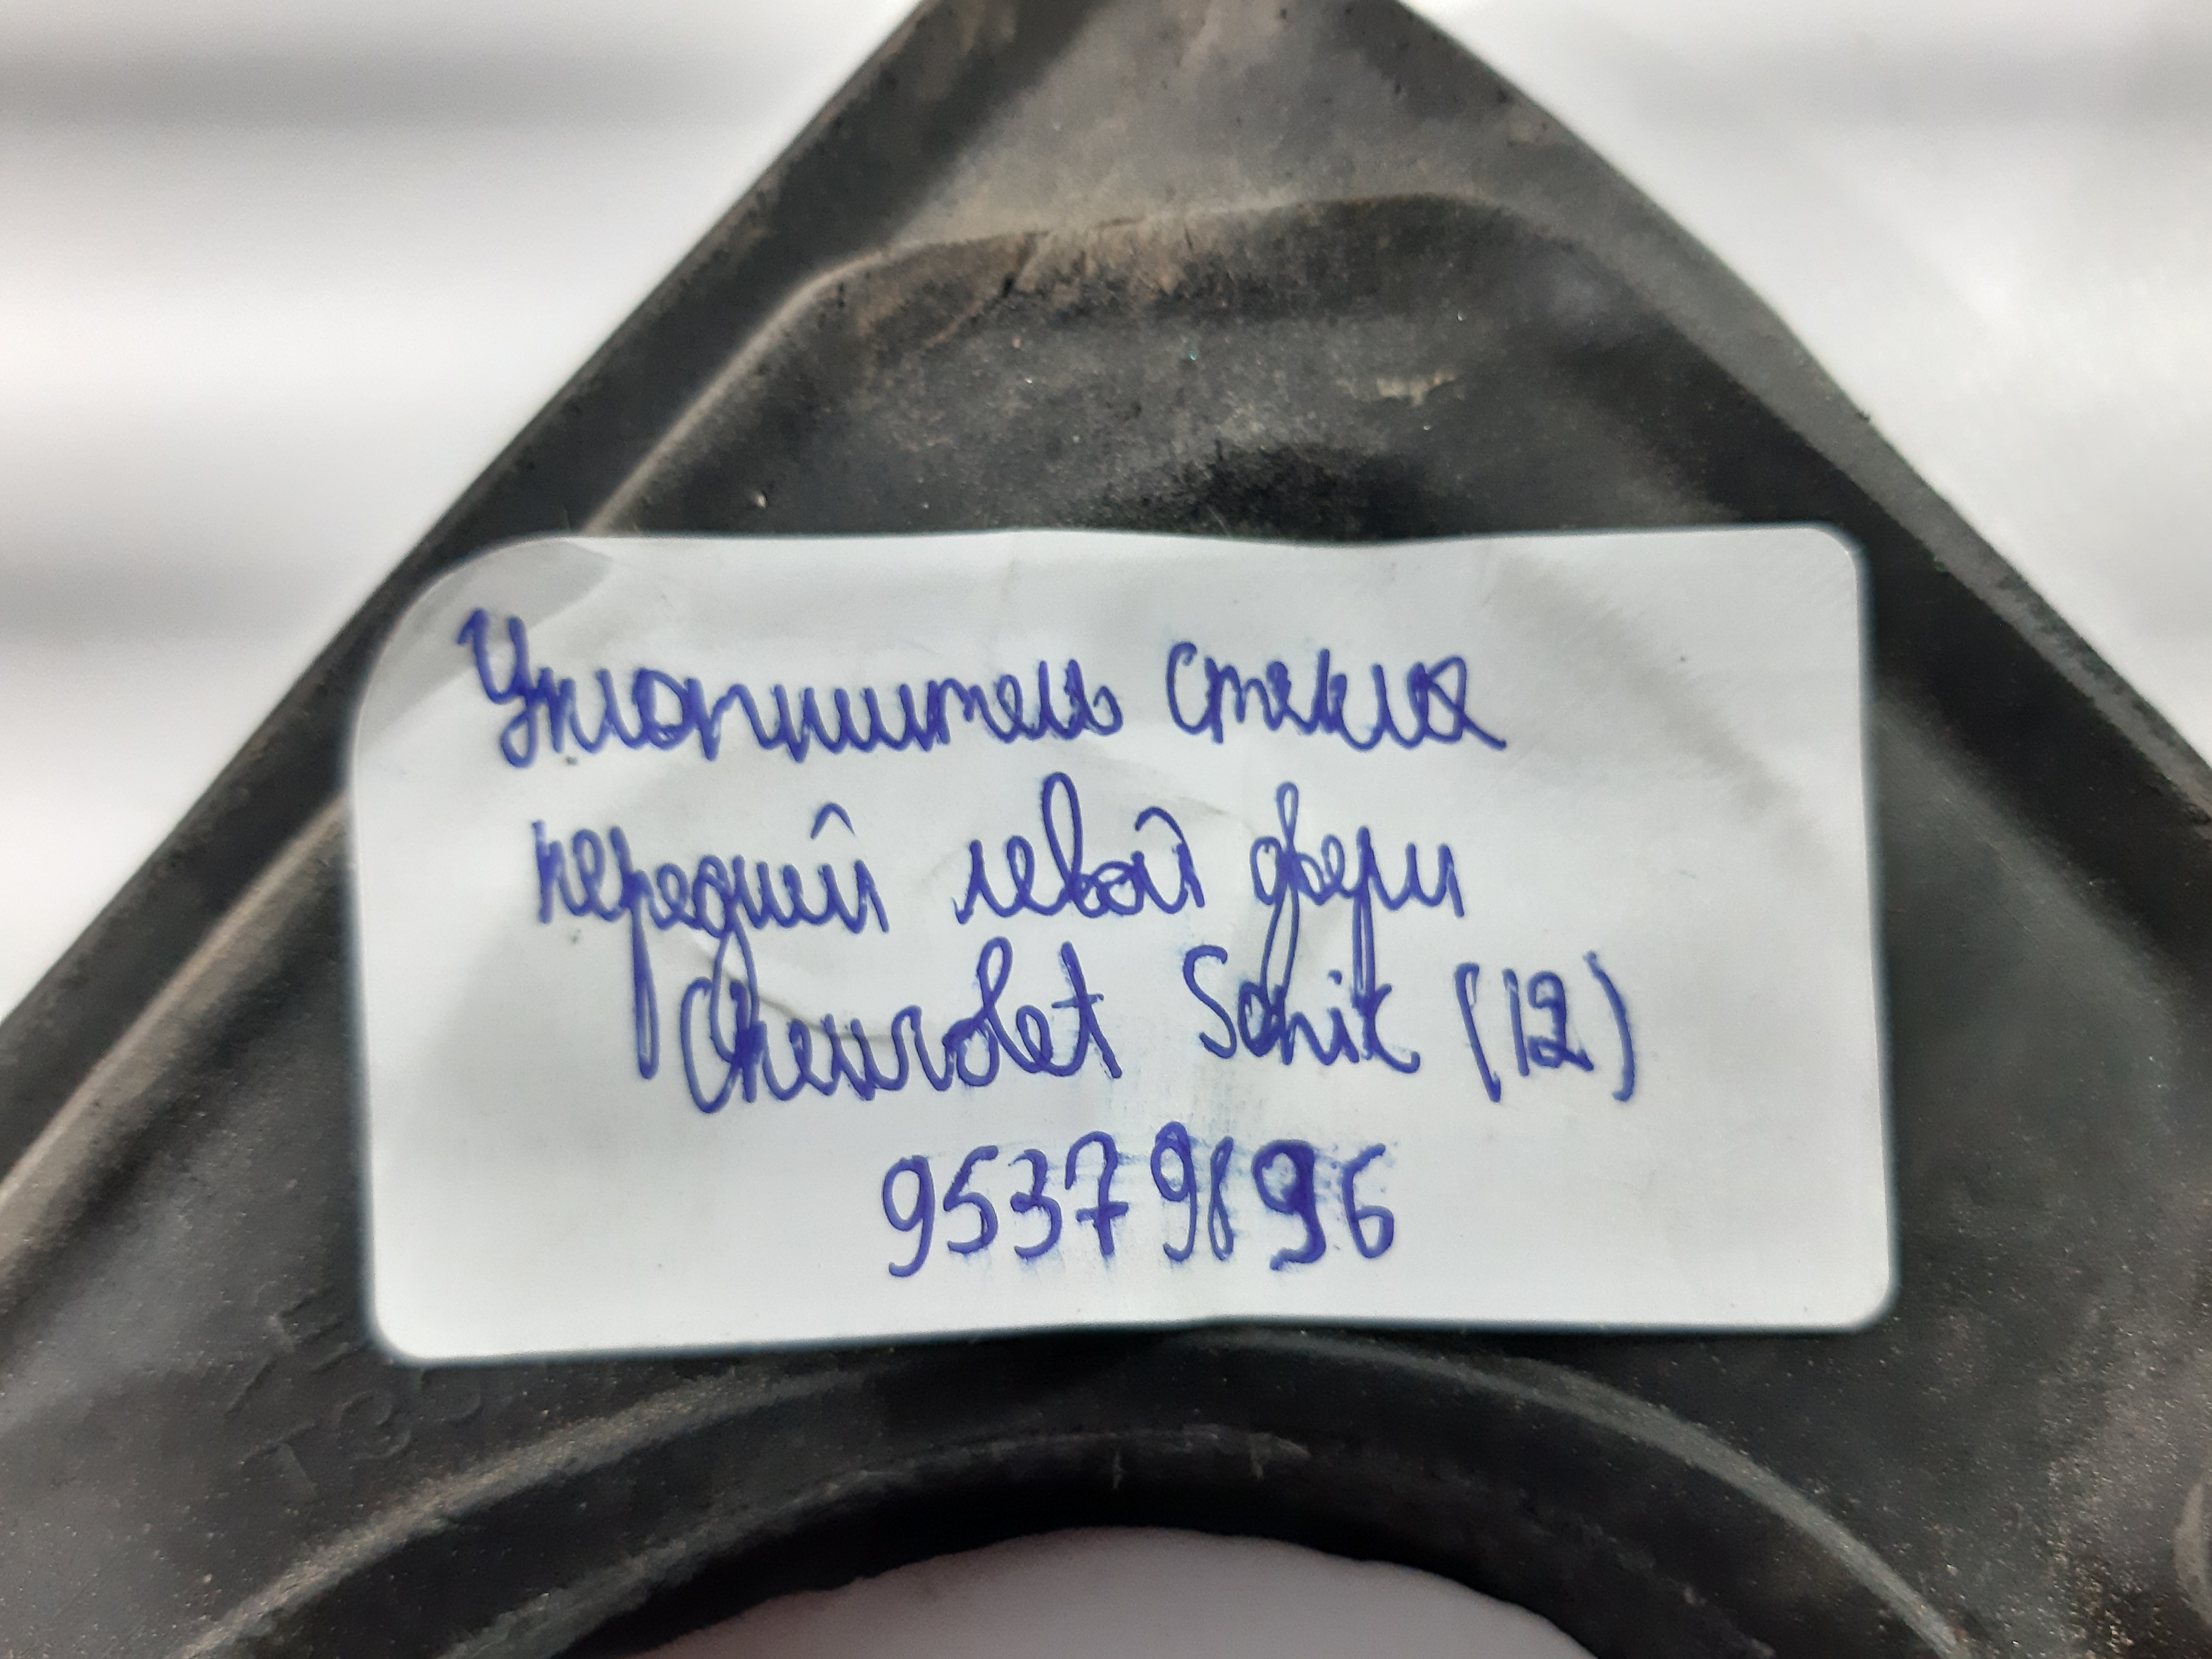 Уплотнитель стекла
передней левой двери
Chevrolet Sonic (12)
95379896